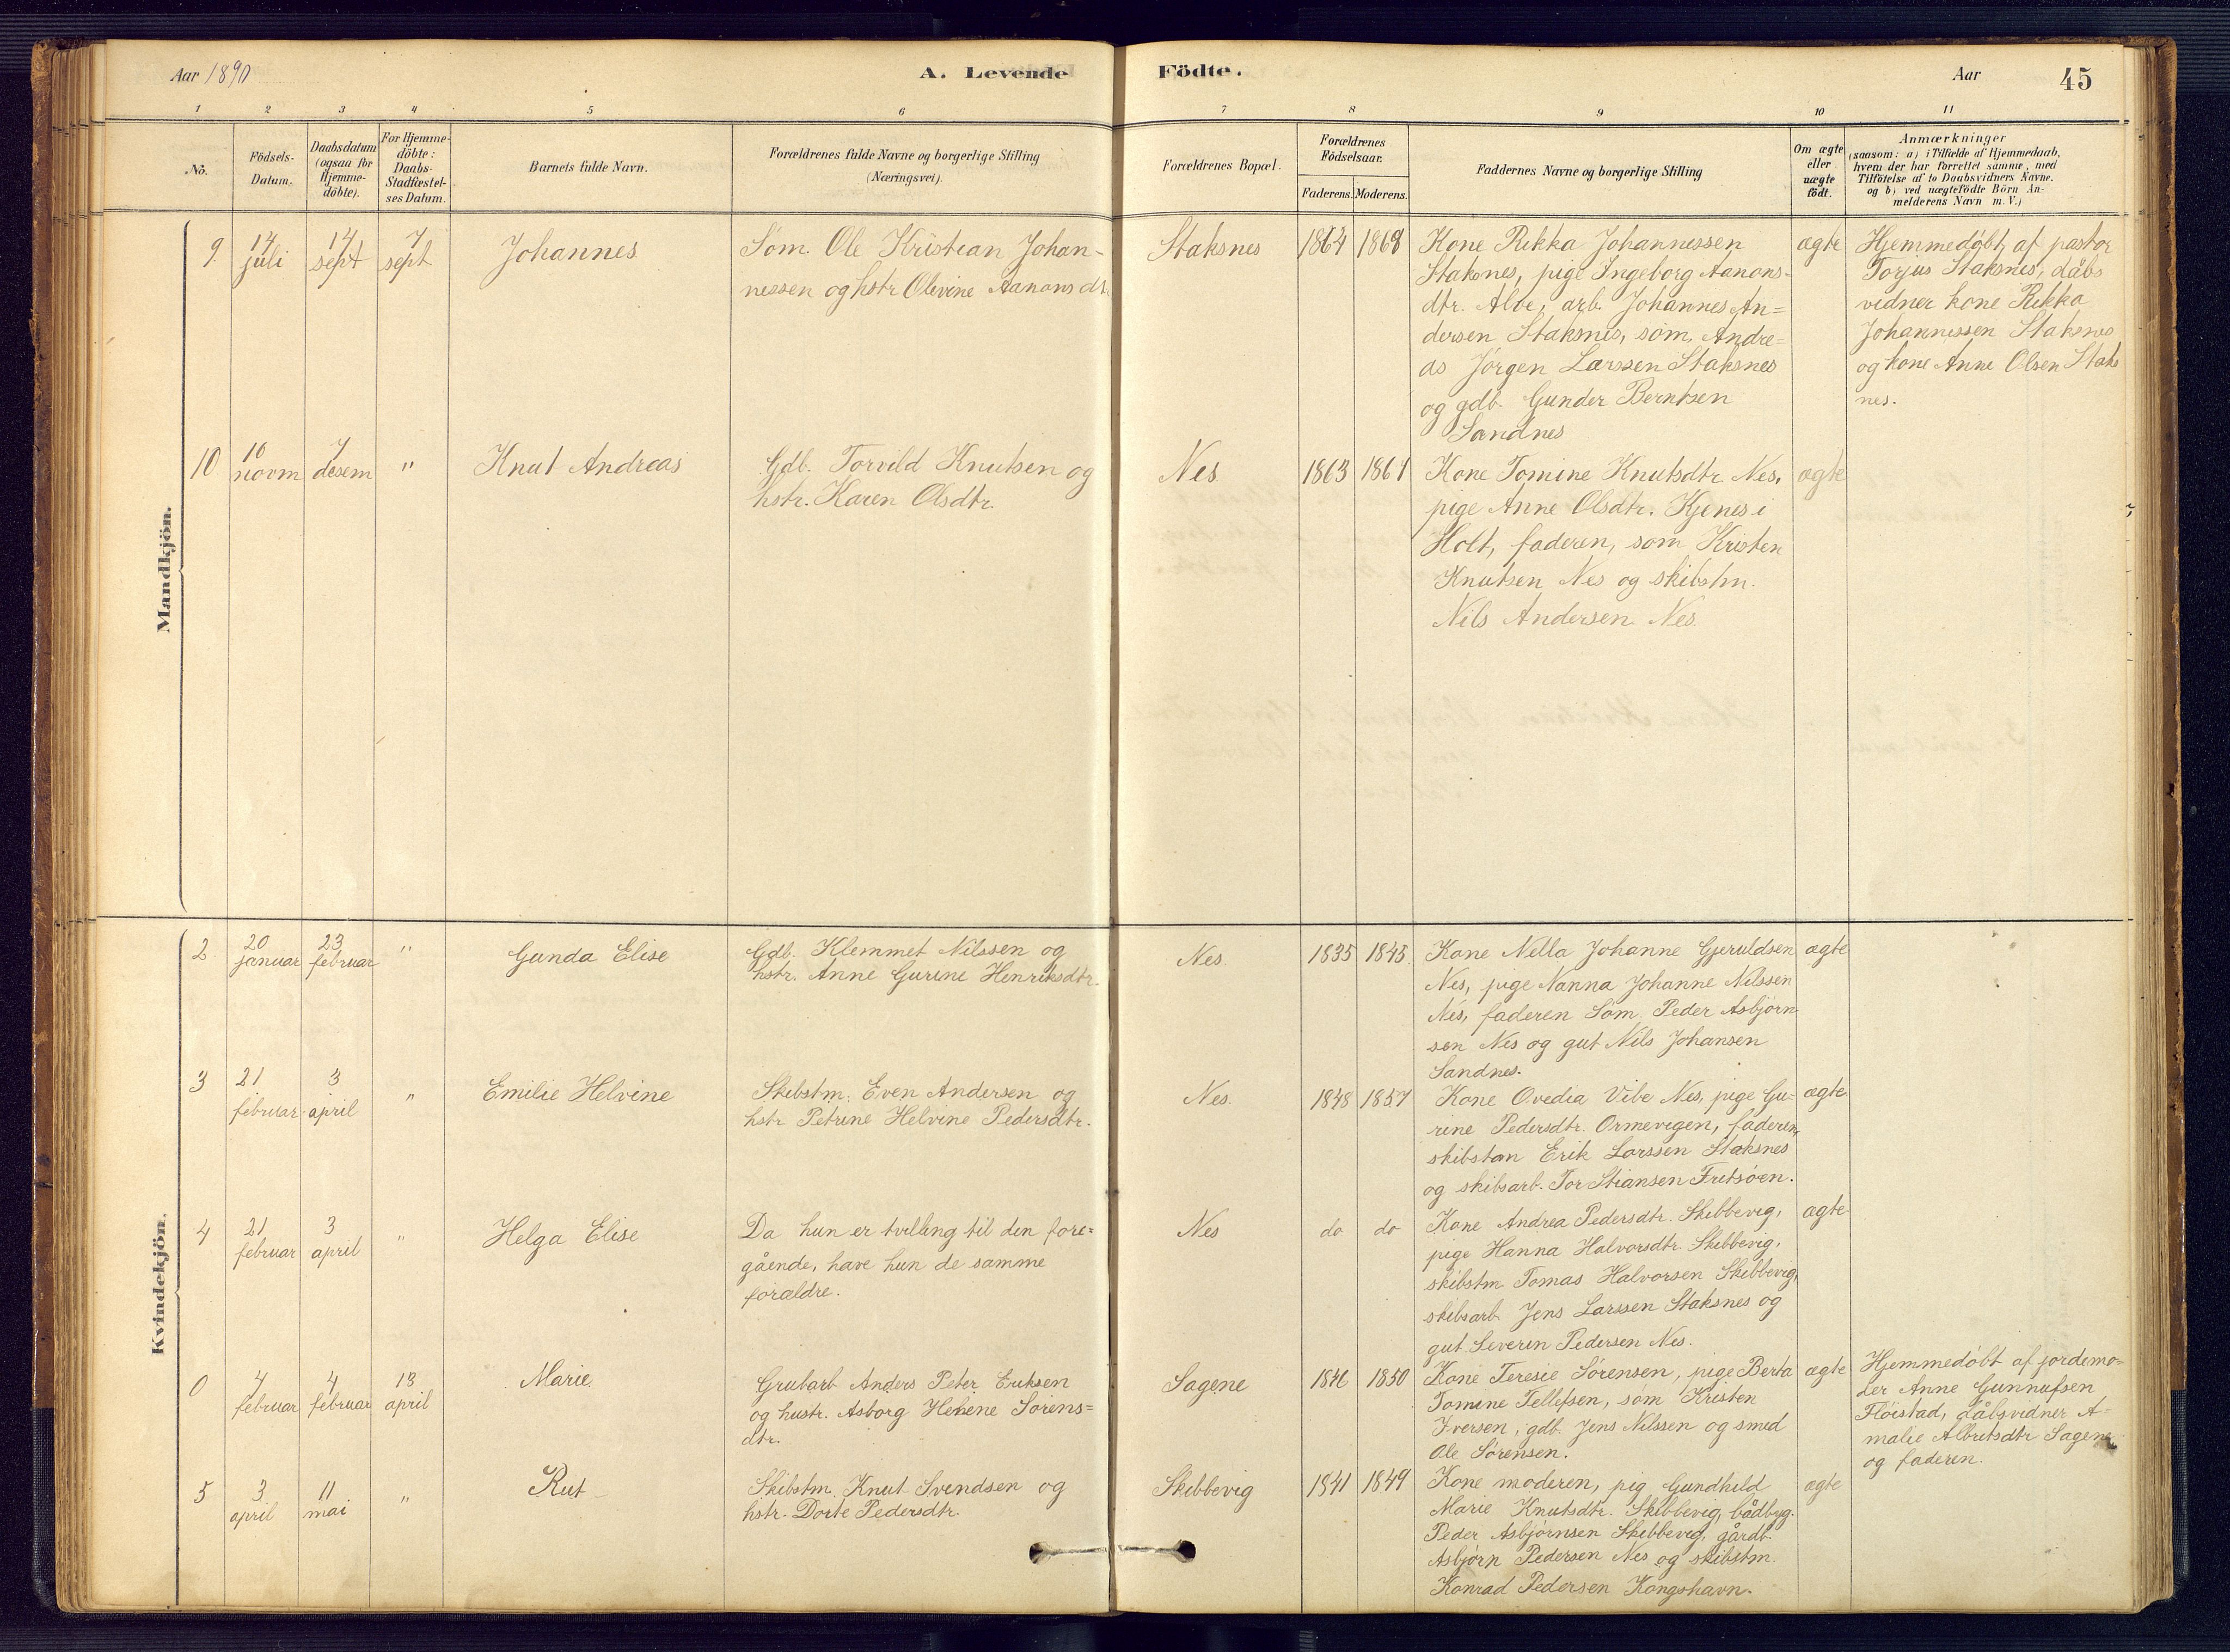 Aar 1890
A. Levende Födte.
Aar
45
1 2 3 4 5 6 7 8 9 10 11
No.
Födsels-
Datum.
Daabsdatum
(ogsaa for
Hjemme-
döbte).
For Hjemme-
döbte:
Daabs-
Stadfæstel-
ses Datum.
Barnets fulde Navn.
Forældrenes fulde Navne og borgerlige Stilling
(Næringsvei).
Forældrenes Bopæl.
Forældrenes
Födselsaar.
Faderens. Moderens.
Faddernes Navne og borgerlige Stilling
Om ægte
eller
uægte
födt.
Anmærkninger
(saasom: a) i Tilfælde af Hjemmedaab,
hvem der har forrettet samme, med
Tilföielse af to Daabsvidners Navne.
og b) ved uægtefödte Börn An-
melderens Navn m. V.)
Mandkjön.
9.
14
juli
14
sept
7
sept
Johannes
Söm. Ole Kristian Johan-
nessen og hstr Olevine Aanonsdtr.
Staksnes
1864
1868
Kone Rikka Johannessen
Staksnes, pige Ingeborg Aanons-
dtr. Alve, arb. Johannes An=
dersen Staksnes, söm. Andre=
as Jörgen Larssen Staksnes
og gdb. Gunder Berntsen
Sandnes
ægte
Hjemmedöbt af pastor
Torjus Staksnes, dåbs
vidner kone Rikka
Johannessen Staksnes
og kone Anne Olsen Staks
nes.
10
10
novm
7
desem
"
Knut Andreas
Gdb. Torvild Knutsen og
hstr. Karen Olsdtr.
Nes.
1863
1861
Kone Tomine Knutsdtr. Nes,
pige Anne Olsdtr. Kjenes i
Holt, faderen, söm Kristen
Knutsen Nes og skibstm.
Nils Andersen Nes.
ægte
Kvindekjön.
2
20
januar
23
februar
"
Gunda Elise
Gdb. Klemmet Nilssen og
hstr. Anne Gurine Henriksdtr.
Nes.
1835
1845.
Kone Nella Johanne Gjeruldsen
Nes, pige Nanna Johanne Nilssen
Nes, faderen Söm. Peder Asbjörn
sen Nes og gut Nils Johansen
Sandnes.
ægte
3
21
februar
3
april
"
Emilie Helvine
Skibstm. Even Andersen og
hstr Petrine Helvine Pedersdtr.
Nes.
1848
1857
Kone Ovedia Vibe Nes, pige Gu-
rine Pedersdtr. Ormevigen, faderen,
skibstøm Erik Larssen Staksnes
og skibsarb. Tor Stiansen Fretsöen.
ægte
4
21
februar
3
april
"
Helga Elise
Da hun er tvilling til den fore=
gående, have hun de samme
forældre.
Nes
do
do
Kone Andrea Pedersdtr. Skibbevig,
pige Hanna Halvorsdtr. Skibbevig,
skibstm Tomas Halvorsen Skibbevig,
skibsarb. Jens Larssen Staksnes og
gut Severin Pedersen Nes.
ægte
0
4
februar
4
februar
13
april
Marie.
Grubarb Anders Peter Eriksen
og hustr. Asborg Helene Sörens=
dtr.
Sagene
1846
1850
Kone Teresie Sörensen, pige Berta
Tomine Tellefsen, söm Kristen
Iversen, gdb. Jens Nilssen og smed
Ole Sörensen.
ægte
Hjemmedöbt af jordemo=
der Anne Gunnufsen
Flöistad, dåbsvidner A-
malie Albretsdtr Sagene
og faderen.
5
3
april
11
mai
"
Rut
Skibstm. Knut Svendsen og
hstr. Dorte Pedersdtr.
Skibbevig
1841
1849
Kone moderen, pig Gundhild
Marie Knutsdtr. Skibbevig, bådbyg.
Peder Asbjörnsen Skibbevig, gårdb.
Asbjörn Pedersen Nes og skibstm.
Konrad Pedersen Kongshavn.
ægte